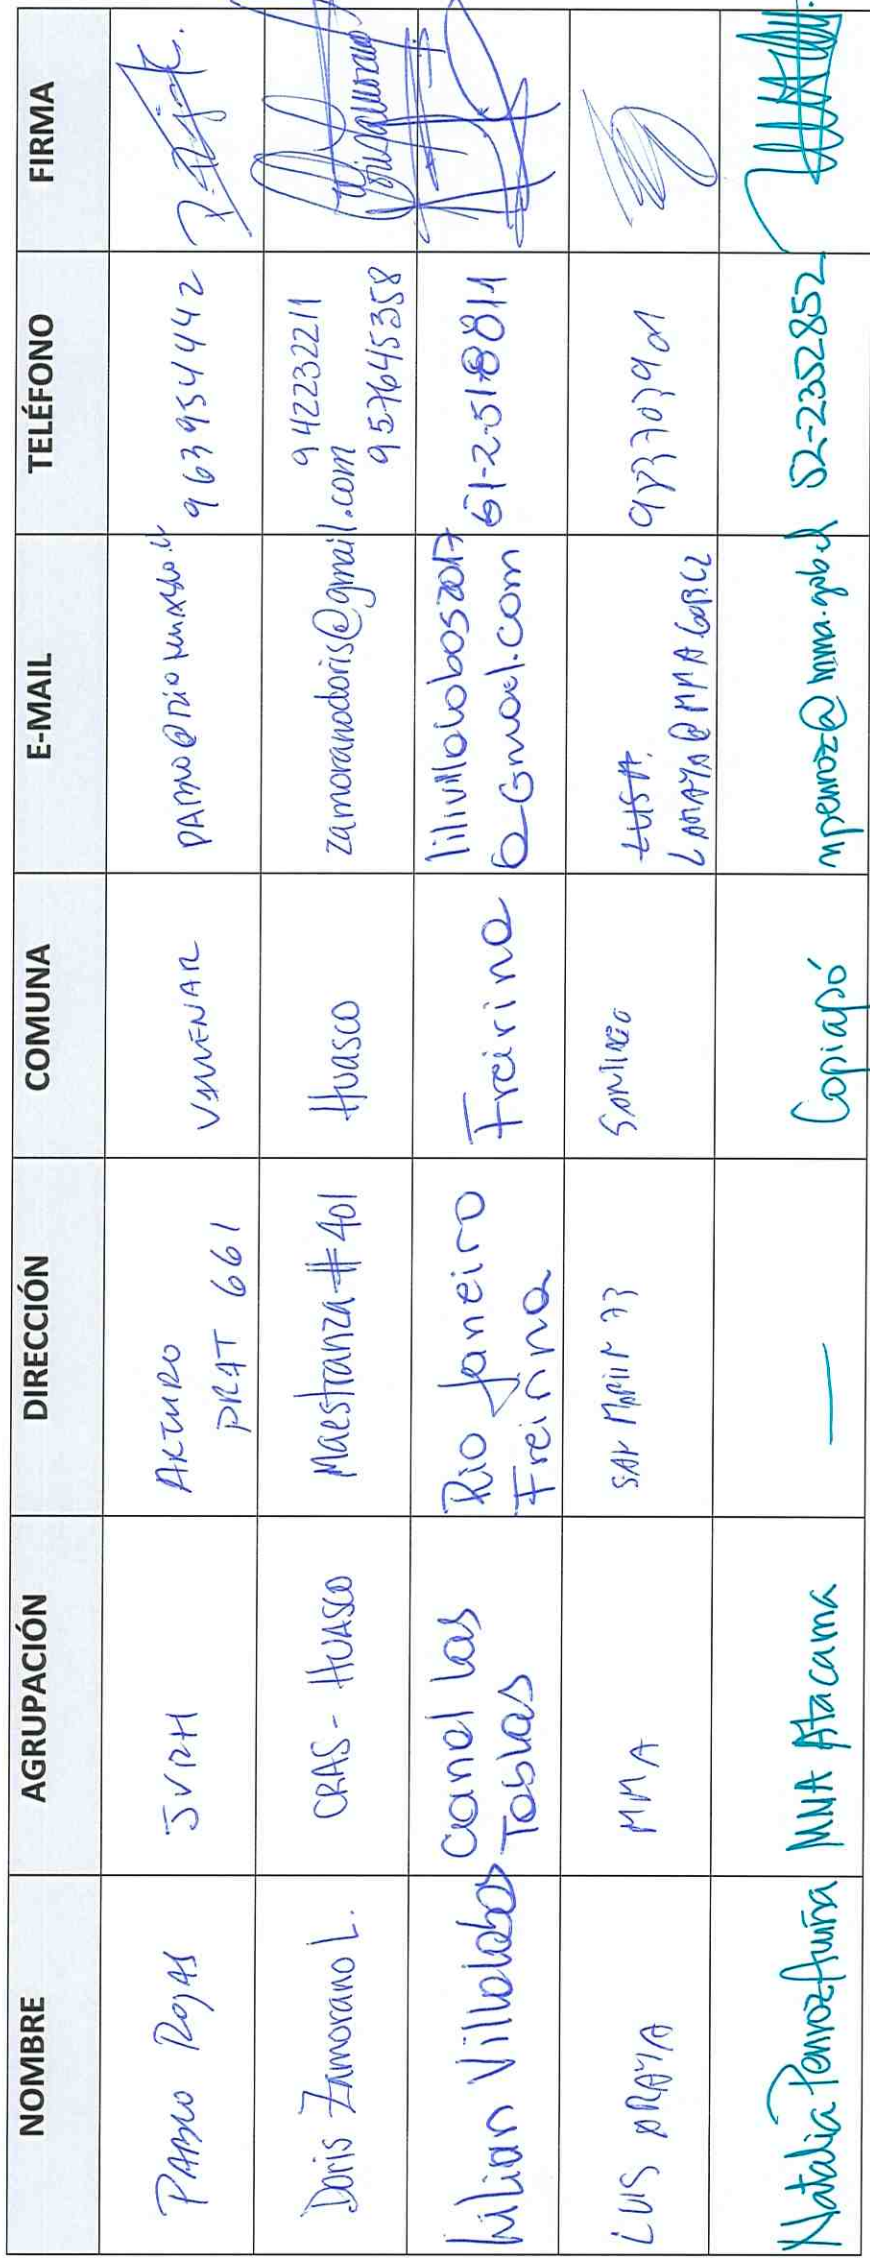 NOMBRE AGRUPACIÓN DIRECCIÓN COMUNA E-MAIL TELÉFONO FIRMA
PABLO ROJAS JVRH ARTURO PRAT 661 VALLENAR 963954442
Doris Zamorano L. CRAS - HUASCO Maestranza #401 Huasco zamoranodoris@gmail.com 942232211
957645358
Lilian Villalobos Canal las Tablas Rio Janeiro Freirina Freirina lilivillalobos2017@Gmail.com 51-2-518811
LUIS ARAYA MMA SAN MARTIN 73 SANTIAGO LARAYA@MMA.GOB.CL
Natalia Penroz Acuña MMA Atacama — Copiapó npenroz@mma.gob.cl 52-2352852